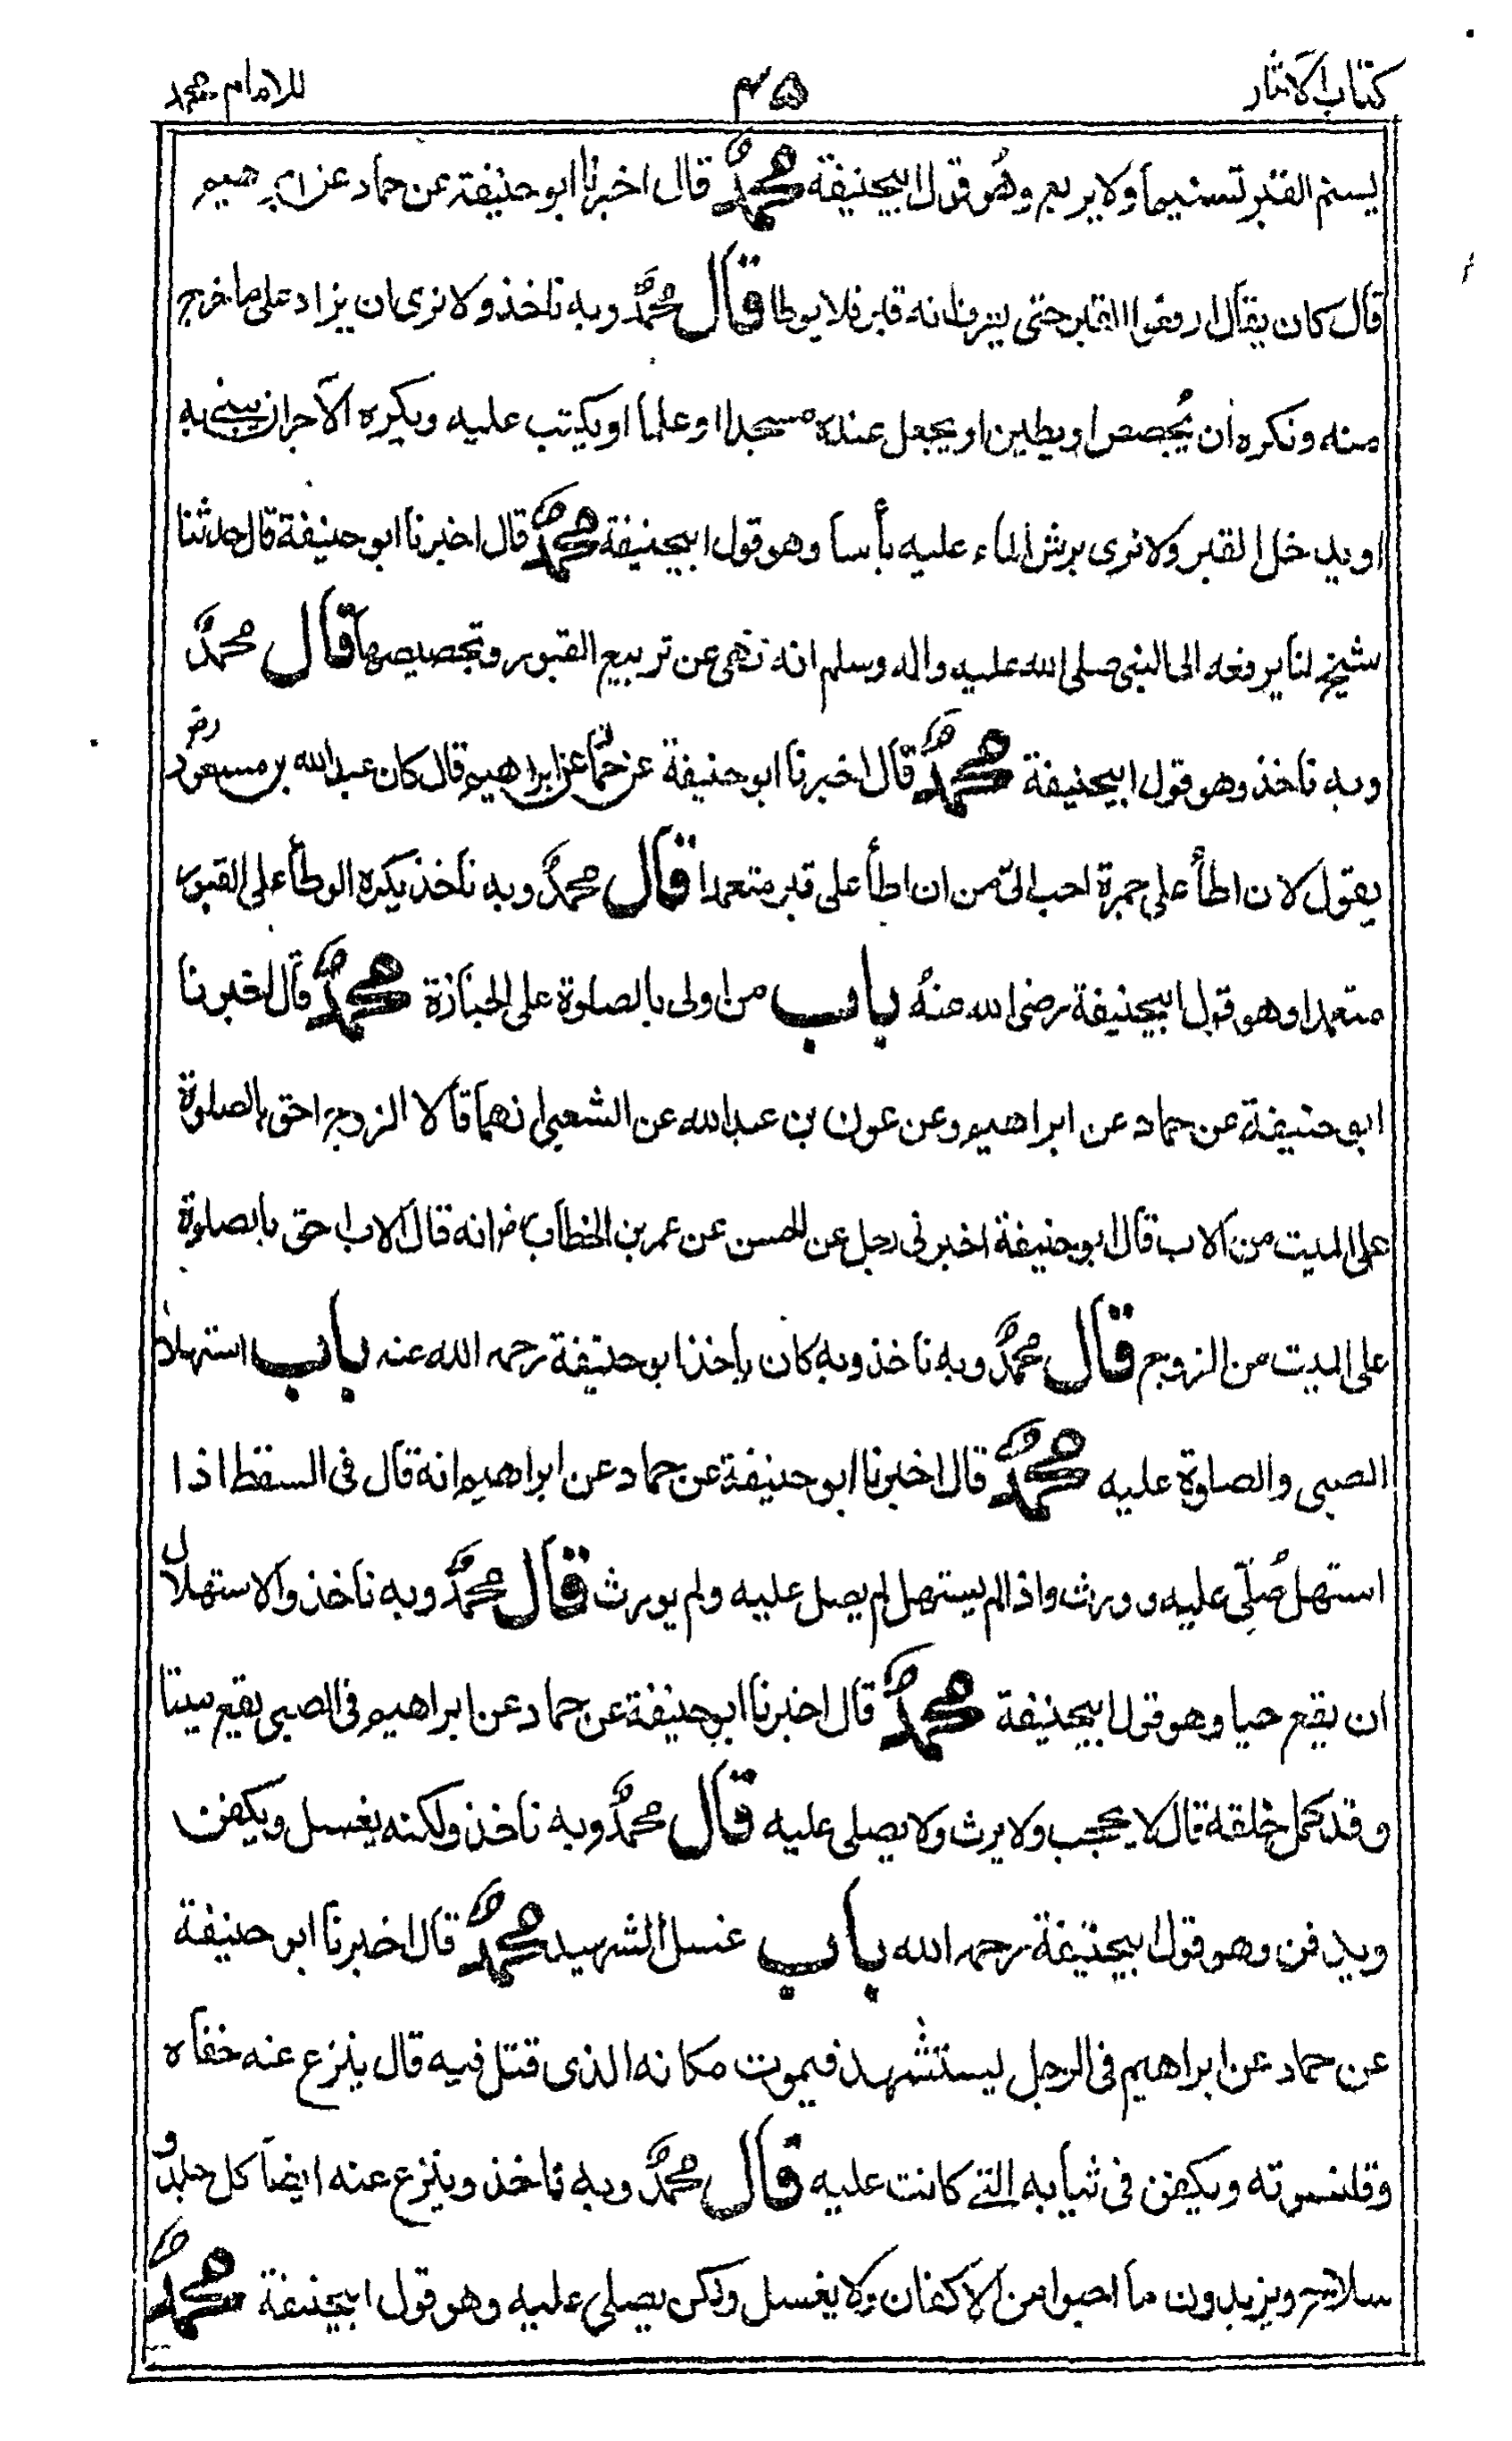 كتاب الآثار
٤٥
للامام محمد
يسنم القبر تسنيما ولا يربع وهو قول ابيحنيفة محمدٌ قال اخبرنا ابو حنيفة عن حماد عن ابرهيم
قال كان يقال ارفعوا القبر حتى يعرف انه قبر فلا يوطا قال محمدٌ وبه ناخذ ولا نرى ان يزاد على ما خرج
منه ونكره ان يُجصص او يطين او يجعل عنده مسجدا او علما او يكتب عليه ويكره الآجر ان يبنى به
او يدخل القبر ولا نرى برش الماء عليه بأسا وهو قول ابيحنيفة محمدٌ قال اخبرنا ابو حنيفة قال حدثنا
شيخ لنا يرفعه الى النبى صلى الله عليه واله وسلم انه نهى عن تربيع القبور وتجصيصها قال محمدٌ
وبه ناخذ وهو قول ابيحنيفة محمدٌ قال اخبرنا ابو حنيفة عن حماد عن ابراهيم قال كان عبد الله بن مسعود رض
يقول لان اطأ على جمرة احب الىّ من ان اطأ على قبر متعمدا قال محمدٌ وبه ناخذ يكره الوطأ على القبور
متعمدا وهو قول ابيحنيفة رضى الله عنهُ باب من اولى بالصلوة على الجنازة محمدٌ قال اخبرنا
ابو حنيفة عن حماد عن ابراهيم وعن عون بن عبد الله عن الشعبى انهما قالا الزوج احق بالصلوة
على الميت من الاب قال ابو حنيفة اخبرنى رجل عن الحسن عن عمر بن الخطاب رض انه قال الاب احق بالصلوة
على الميت من الزوج قال محمدٌ وبه ناخذ وبه كان ياخذ ابو حنيفة رحمه الله عنه باب استهلال
الصبى والصلوة عليه محمدٌ قال اخبرنا ابو حنيفة عن حماد عن ابراهيم انه قال فى السقط اذا
استهل صُلّى عليه و ورث واذا لم يستهل لم يصل عليه ولم يورث قال محمدٌ وبه ناخذ والاستهلال
ان يقع حيا وهو قول ابيحنيفة محمدٌ قال اخبرنا ابو حنيفة عن حماد عن ابراهيم فى الصبى يقع ميتا
وقد كمل خلقه قال لا يحجب ولا يرث ولا يصلى عليه قال محمدٌ وبه ناخذ ولكنه يغسل ويكفن
ويدفن وهو قول ابيحنيفة رحمه الله باب غسل الشهيد محمدٌ قال اخبرنا ابو حنيفة
عن حماد عن ابراهيم فى الرجل يستشهد فيموت مكانه الذى قتل فيه قال ينزع عنه خفاه
وقلنسوته ويكفن فى ثيابه التى كانت عليه قال محمدٌ وبه ناخذ وينزع عنه ايضا كل جلد و
سلاح ويزيدون ما احبوا من الاكفان ولا يغسل ولكن يصلى عليه وهو قول ابيحنيفة محمدٌ